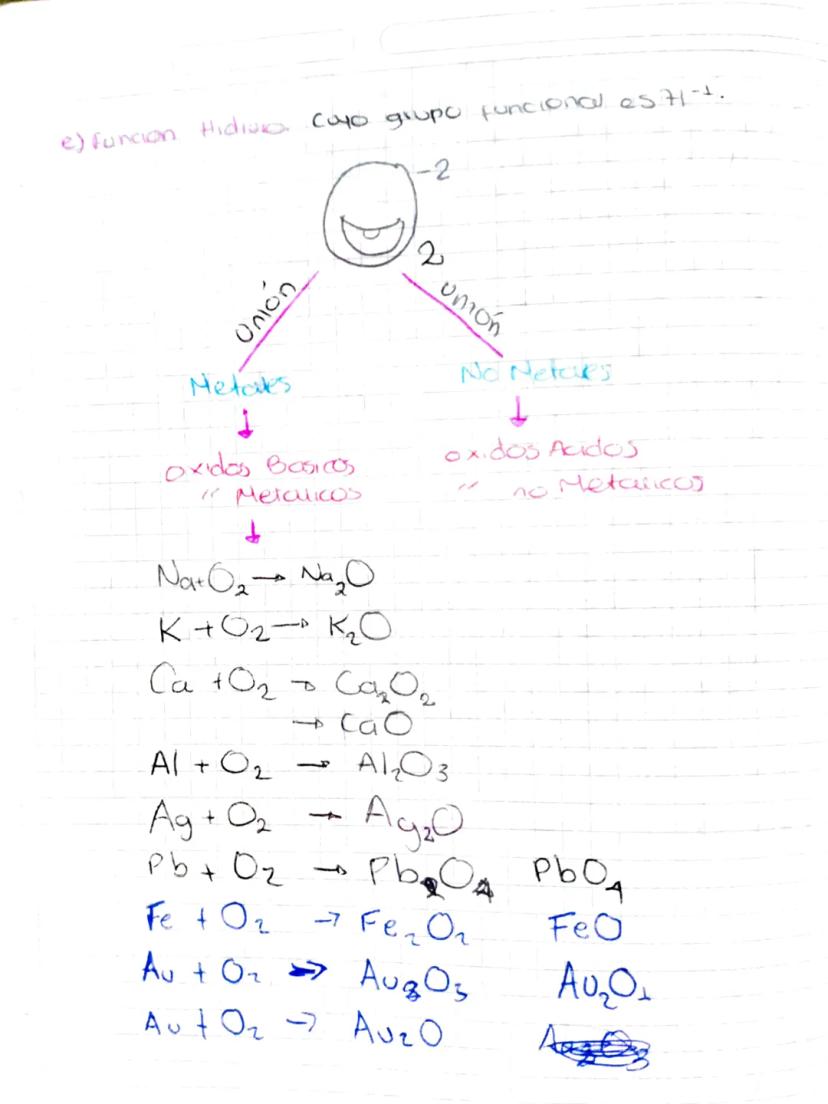 e) Función Hidruro. Cuyo grupo funcional es H⁻¹.
-2
2
Unión Unión
Metales No Metales
Oxidos Basicos Oxidos Acidos
" Metalicos " no Metalicos
Na+O₂ → Na₂O
K + O₂ → K₂O
Ca + O₂ → Ca₂O₂
→ CaO
Al + O₂ → Al₂O₃
Ag + O₂ → Ag₂O
Pb + O₂ → Pb₂O₄ PbO₄
Fe + O₂ → Fe₂O₂ FeO
Au + O₂ → Au₂O₃ Au₂O₁
Au + O₂ → Au₂O